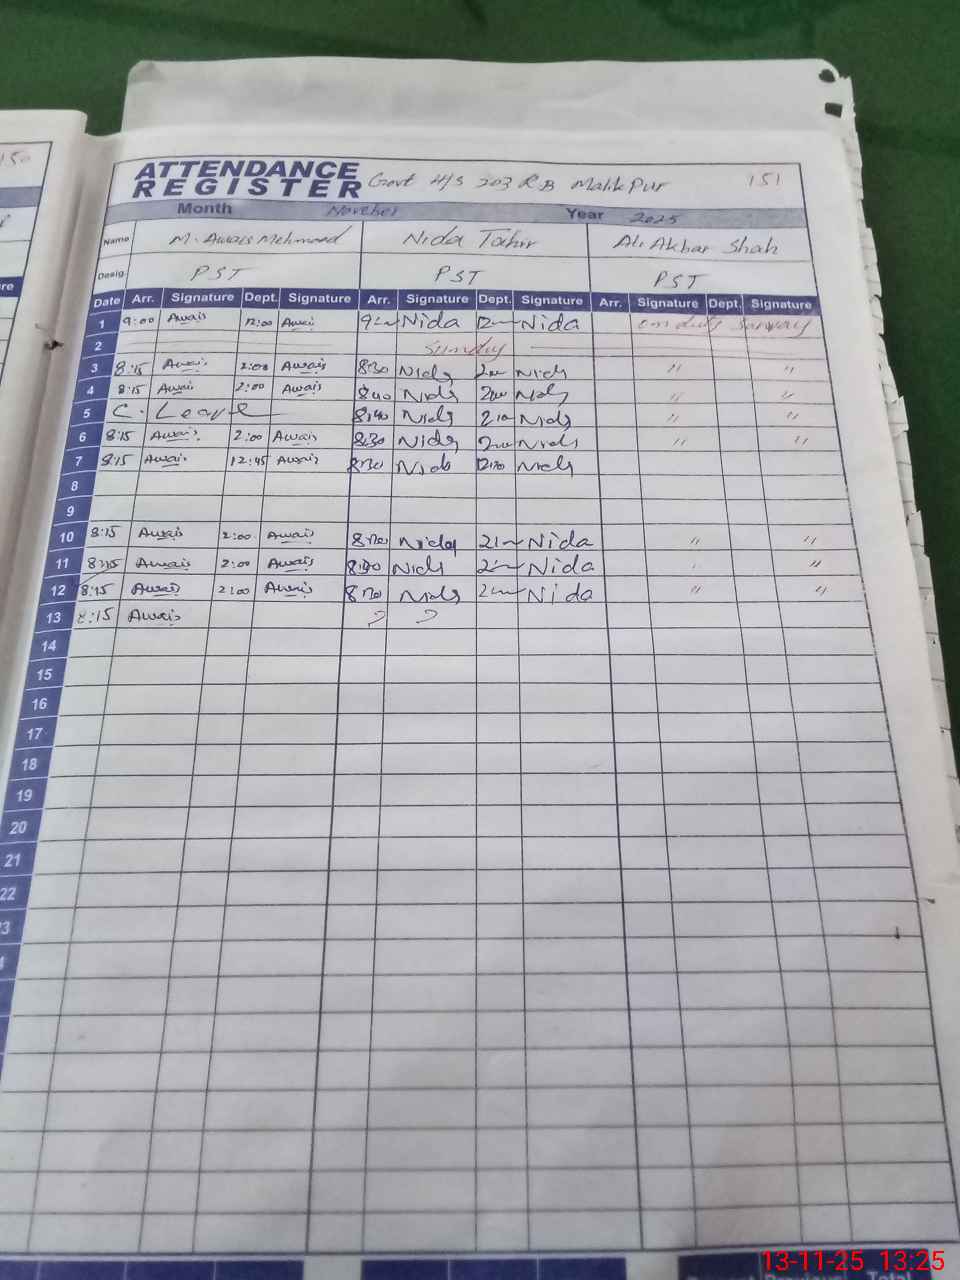 150
ATTENDANCE
REGISTER Govt H/S 203 R.B Malik Pur 151
Month November Year 2025
Name M. Awais Mehmood Nida Tahir Ali Akbar Shah
Desig. PST PST PST
Date Arr. Signature Dept. Signature Arr. Signature Dept. Signature Arr. Signature Dept. Signature
1 9:00 Awais 12:00 Awais 9 Nida 12 Nida on duty
2 Sunday
3 8:15 Awais 2:00 Awais 8:30 Nida 2:00 Nida 〃 〃
4 8:15 Awais 2:00 Awais 8:40 Nida 2:00 Nida 〃 〃
5 C. Leave 8:40 Nida 2:10 Nida 〃 〃
6 8:15 Awais 2:00 Awais 8:30 Nida 2:00 Nida 〃 〃
7 8:15 Awais 12:45 Awais 8:30 Nida Nida
8
9
10 8:15 Awais 2:00 Awais Nida Nida 〃 〃
11 8:15 Awais 2:00 Awais Nida Nida 〃
12 8:15 Awais 2:00 Awais Nida Nida 〃 〃
13 8:15 Awais
14
15
16
17
18
19
20
21
22
13-11-25 13:25